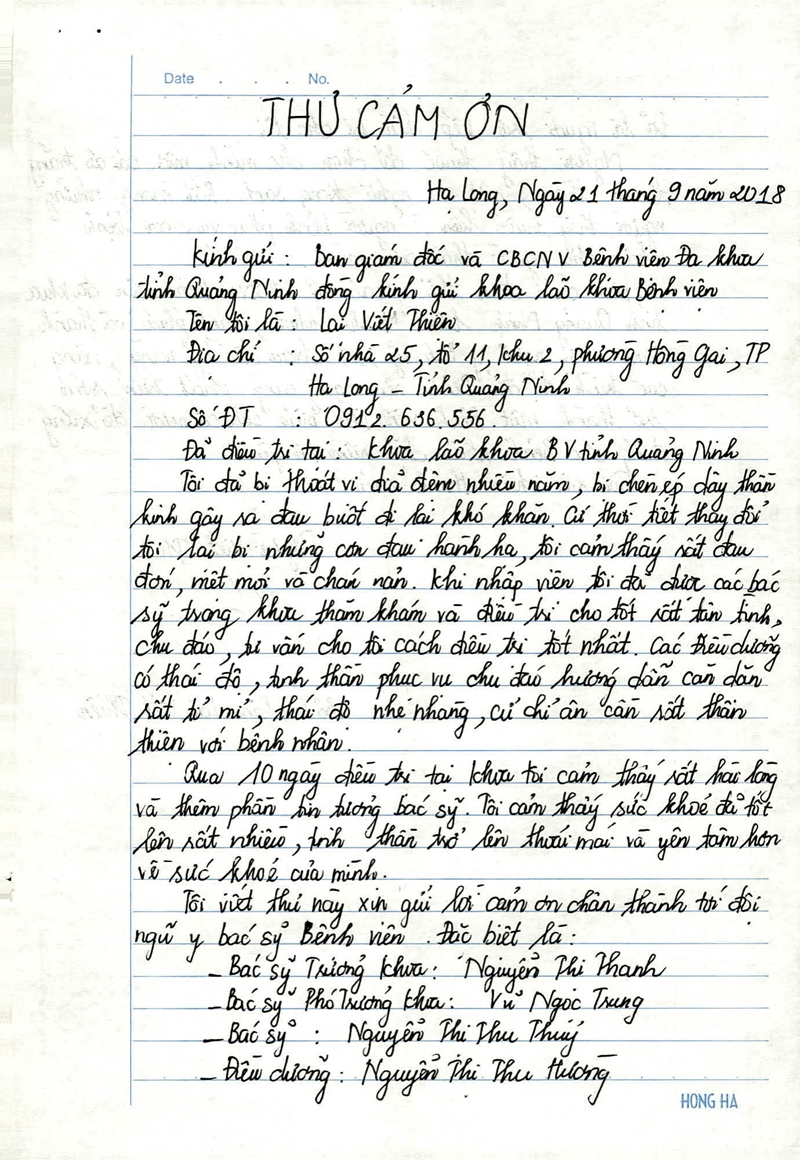 Date . . . No.
THƯ CẢM ƠN
Hạ Long, Ngày 21 tháng 9 năm 2018
Kính gửi : Ban giám đốc và CBCNV Bệnh viện Đa khoa
tỉnh Quảng Ninh đồng kính gửi khoa lão khoa Bệnh viện
Tên tôi là : Lại Viết Thiện
Địa chỉ : Số nhà 25, tổ 11, khu 2, phường Hồng Gai, TP
Hạ Long - Tỉnh Quảng Ninh
Số ĐT : 0912. 636. 556.
Đã điều trị tại : khoa lão khoa BV tỉnh Quảng Ninh
Tôi đã bị thoát vị đĩa đệm nhiều năm, bị chèn ép dây thần
kinh gây ra đau buốt đi lại khó khăn. Cứ thời tiết thay đổi
tôi lại bị những cơn đau hành hạ, tôi cảm thấy rất đau
đớn, mệt mỏi và chán nản. Khi nhập viện tôi đã được các bác
sỹ trong khoa thăm khám và điều trị cho tốt rất tận tình,
chu đáo, tư vấn cho tôi cách điều trị tốt nhất. Các Điều dưỡng
có thái độ, tinh thần phục vụ chu đáo hướng dẫn căn dặn
rất tỉ mỉ, thái độ nhẹ nhàng, cử chỉ ân cần rất thân
thiện với bệnh nhân.
Qua 10 ngày điều trị tại khoa tôi cảm thấy rất hài lòng
và thêm phần tin tưởng bác sỹ. Tôi cảm thấy sức khoẻ đã tốt
lên rất nhiều, tinh thần trở lên thoải mái và yên tâm hơn
về sức khoẻ của mình.
Tôi viết thư này xin gửi lời cảm ơn chân thành tới đội
ngũ y bác sỹ Bệnh viện. Đặc biệt là :
- Bác sỹ Trưởng khoa : Nguyễn Thị Thanh
- Bác sỹ Phó Trưởng khoa : Vũ Ngọc Trung
- Bác sỹ : Nguyễn Thị Thu Thuỷ
- Điều dưỡng : Nguyễn Thị Thu Hương
HONG HA